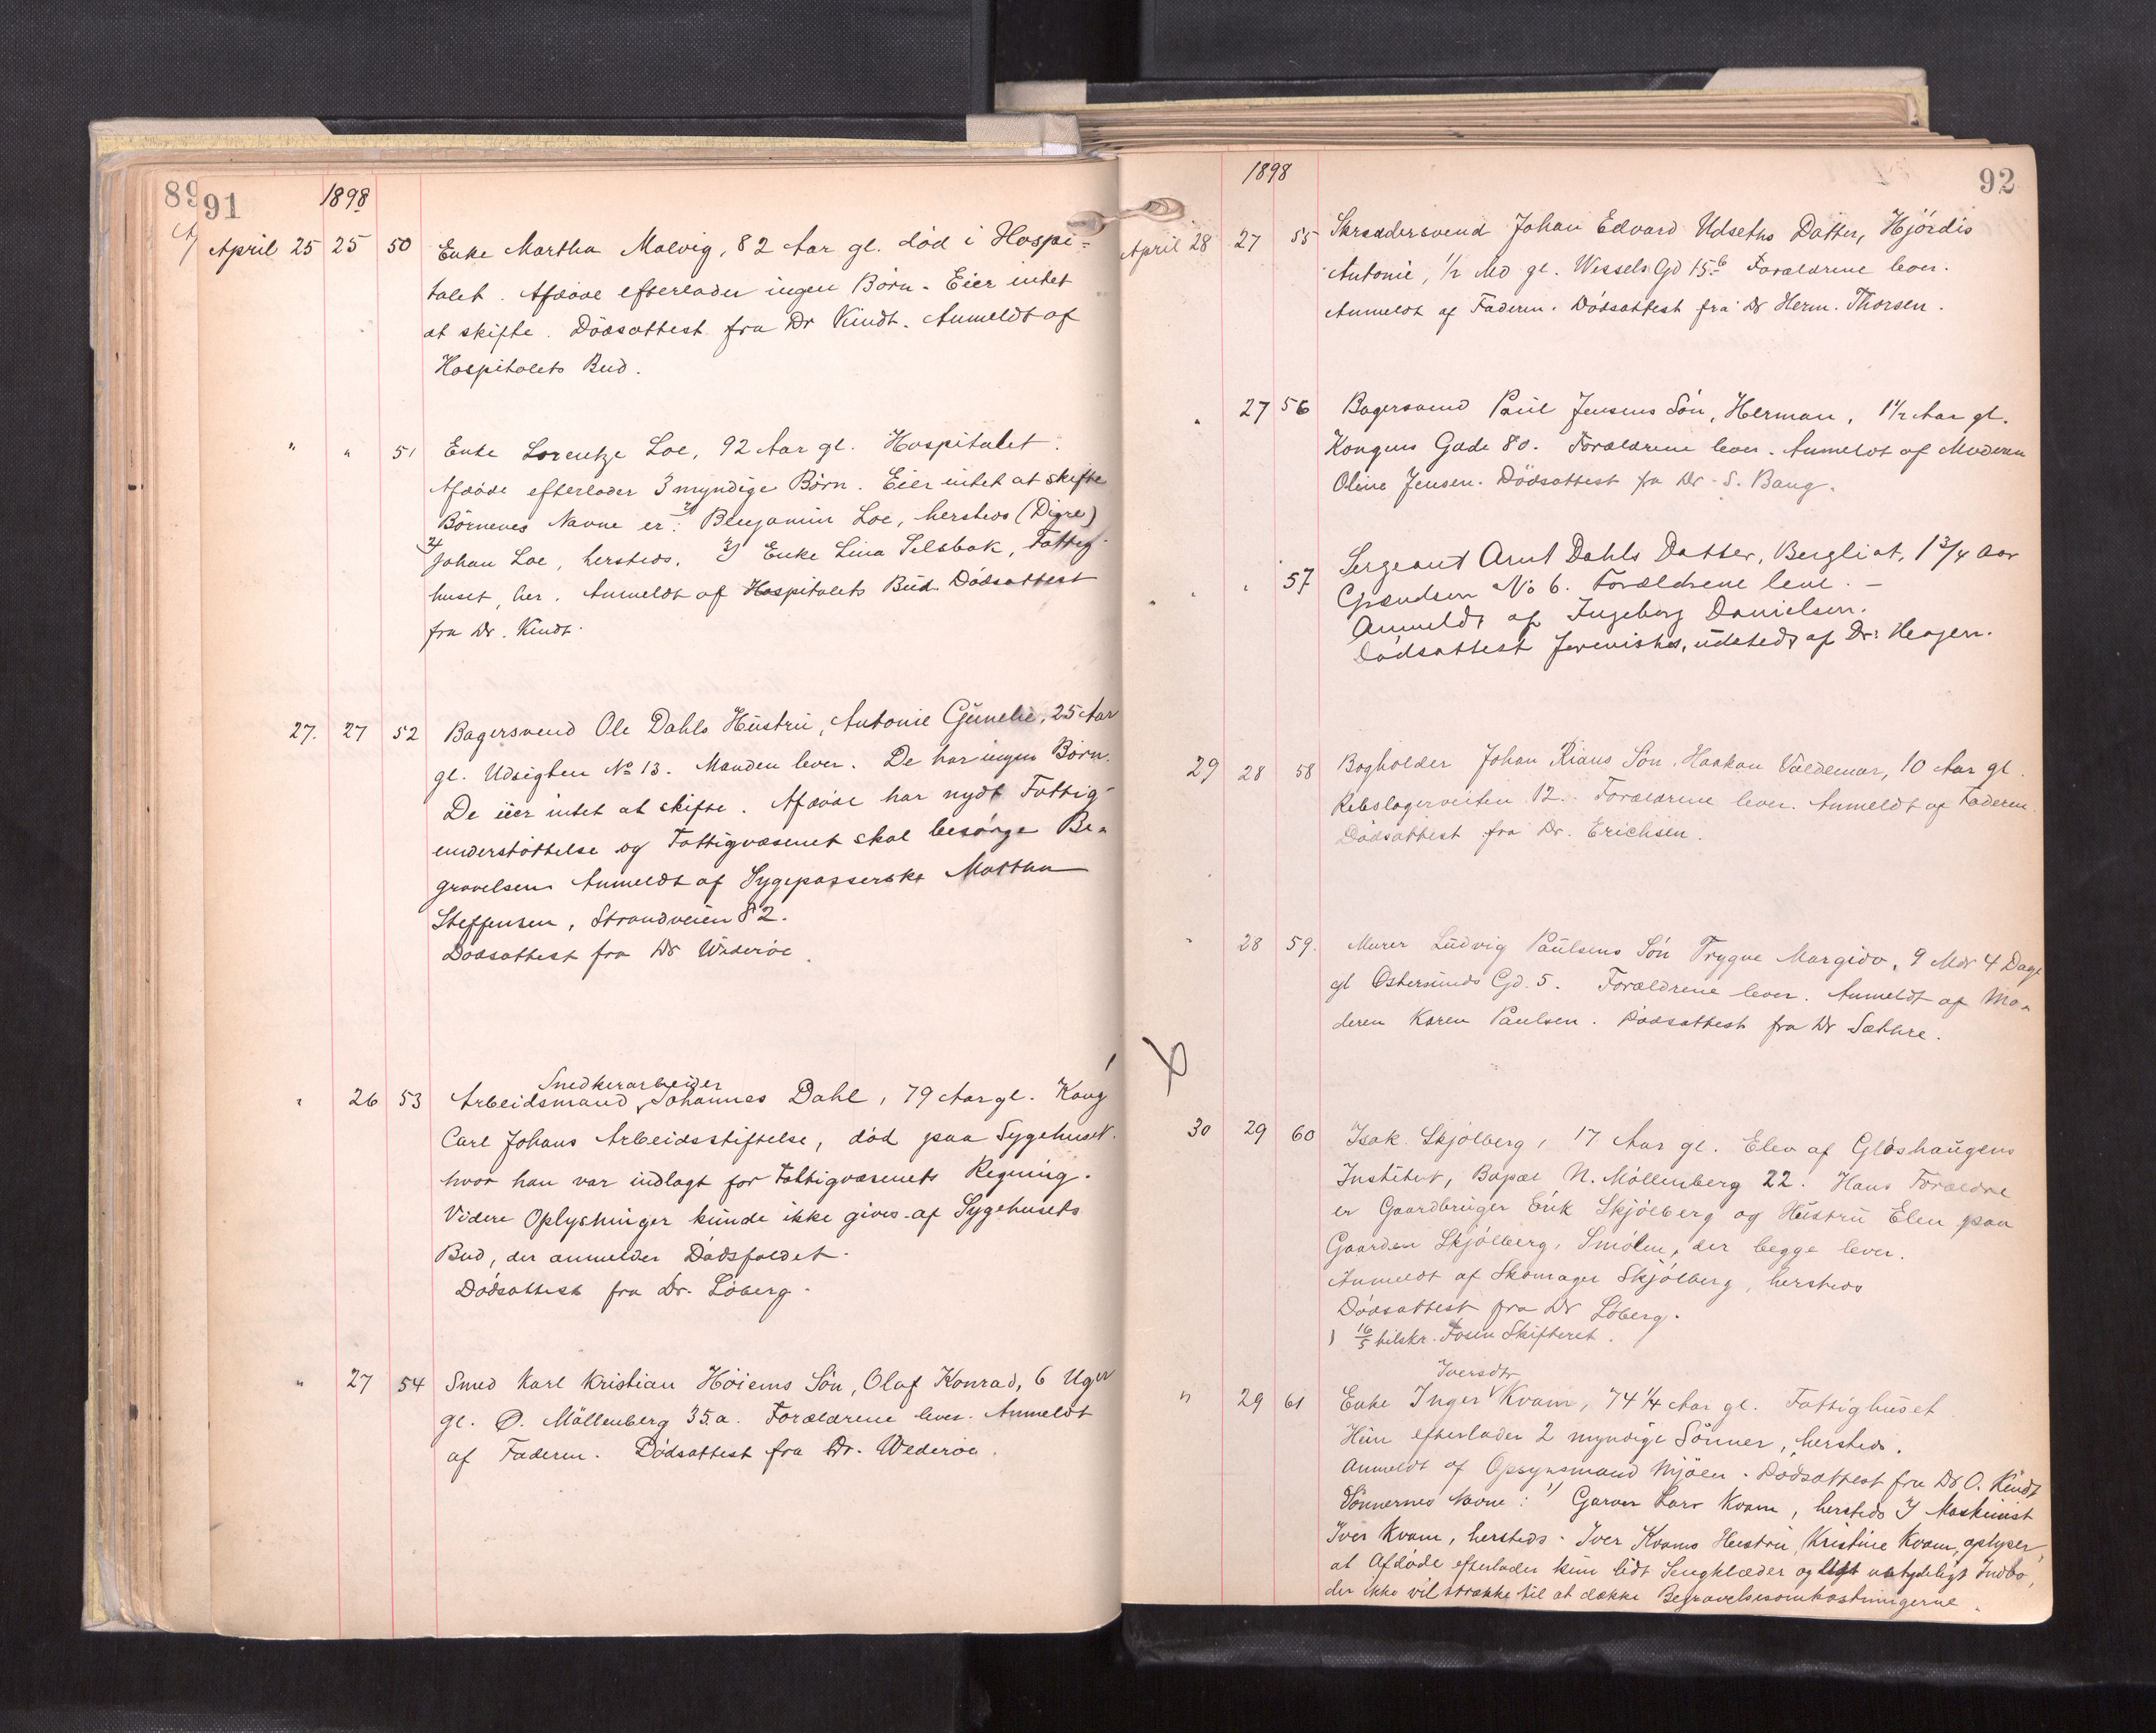 89
91
1898
April 25 25 50 Enke Martha Malvig, 82 Aar gl. död i Hospi=
talet. Afdøde efterlader ingen Börn. Eier intet
at skifte. Dödsattest fra Dr Kindt. Anmeldt af
Hospitalets Bud.
" " 51 Enke Lorentze Loe, 92 Aar gl. Hospitalet.
Afdöde efterlader 3 myndige Börn. Eier intet at skifte
Börnenes Navne er: 1) Benjamin Loe, hersteds (Digre)
2) Johan Loe, hersteds. 3) Enke Lina Selsbak, Fattig-
huset, her. Anmeldt af Hospitalets Bud. Dödsattest
fra Dr. Kindt.
27. 27 52 Bagersvend Ole Dahls Hustru, Antonie Gunelie, 25 Aar
gl. Udsigten No 13. Manden lever. De har ingen Börn.
De eier intet at skifte. Afdöde har nydt Fattig-
understöttelse og Fattigvæsenet skal besörge Be-
gravelsen. Anmeldt af Sygepasserske Martha
Steffensen, Strandveien 82.
Dödsattest fra Dr Wideröe.
" 26 53 Arbeidsmand, Snedkerarbeider Johannes Dahl, 79 Aar gl. Kong
Carl Johans Arbeidsstiftelse, död paa Sygehuset.
hvor han var indlagt for Fattigvæsenets Regning.
Videre Oplysninger kunde ikke gives af Sygehusets
Bud, der anmelder Dödsfaldet.
Dödsattest fra Dr. Löberg.
" 27 54 Smed Karl Kristian Höiems Sön, Olaf Konrad, 6 Uger
gl. Ø. Möllenberg 35.a. Forældrene lever. Anmeldt
af Faderen. Dödsattest fra Dr. Wideröe.
1898
92
April 28 27 55 Skreddersvend Johan Edvard Udseths Datter, Hjördis
Antonie, 1/2 Md gl. Wessels Gd 15b Forældrene lever.
Anmeldt af Faderen. Dödsattest fra Dr Herm. Thorsen.
" 27 56 Bagersvend Paul Jensens Sön, Herman, 1 1/2 Aar gl.
Kongens Gade 80. Forældrene lever. Anmeldt af Moderen
Oline Jensen. Dödsattest fra Dr. S. Bang.
" " 57 Sergeant Arnt Dahls Datter, Bergliot, 1 3/4 Aar
Grændsen No 6. Forældrene leve. —
Anmeldt af Ingeborg Danielsen.
Dödsattest forevistes, udstedt af Dr. Hegen.
29 28 58 Bogholder Johan Kiaus Sön, Haakon Valdemar, 10 Aar gl.
Rebslagerveiten 12. Forældrene lever. Anmeldt af Faderen.
Dödsattest fra Dr. Erichsen.
" 28 59. Murer Ludvig Paulsens Sön Trygve Margido, 9 Mdr 4 Dage
gl Östersunds Gd. 5. Forældrene lever. Anmeldt af Mo-
deren Karen Paulsen. Dödsattest fra Dr Sæthre.
30 29 60 Isak Skjölberg, 17 Aar gl. Elev af Glöshaugens
Institut, Bopæl N. Möllenberg 22. Hans Forældre
er Gaardbruger Erik Skjölberg og Hustru Elen paa
Gaarden Skjölberg, Smölen, der begge lever.
Anmeldt af Skomager Skjölberg, hersteds
Dödsattest fra Dr Löberg.
16/5 tilskr. Fosen Skifteret.
Iversdtr
" 29 61 Enke Inger Kvam, 74 1/4 Aar gl. Fattighuset
Hun efterlader 2 myndige Sönner, hersteds.
Anmeldt af Opsynsmand Mjöen. Dödsattest fra Dr O. Kindt
Sönnernes Navne: 1) Garver Lars Kvam, hersteds 2) Maskinist
Iver Kvam, hersteds. Iver Kvams Hustru, Kristine Kvam, oplyser,
at Afdöde efterlader kun lidt Sengklæder og lidt ubetydeligt Indbo,
der ikke vil strække til at dække Begravelsesomkostningerne.